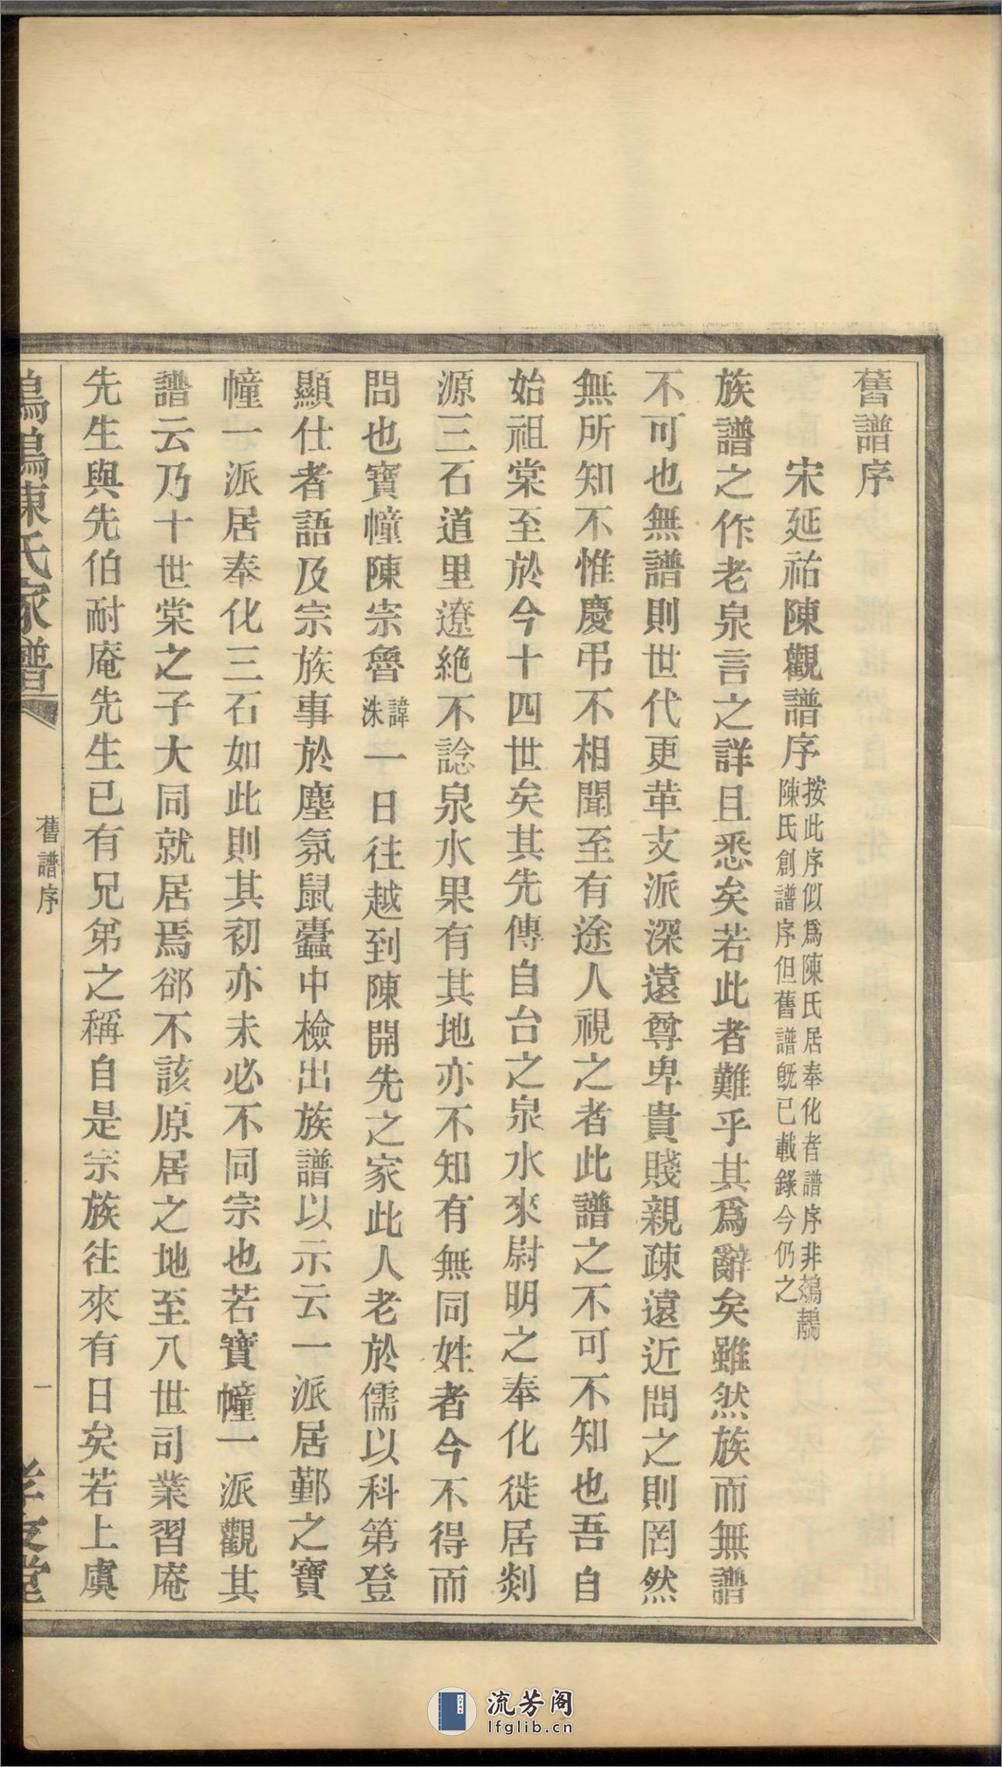 舊譜序
宋延祐陳觀譜序
按此序似爲陳氏居奉化者譜序非鵁鶄
陳氏創譜序但舊譜既已載錄今仍之
族譜之作老泉言之詳且悉矣若此者難乎其爲辭矣雖然族而無譜
不可也無譜則世代更革支派深遠尊卑貴賤親疎遠近問之則罔然
無所知不惟慶弔不相聞至有途人視之者此譜之不可不知也吾自
始祖棠至於今十四世矣其先傳自台之泉水來尉明之奉化徙居剡
源三石道里遼絶不諗泉水果有其地亦不知有無同姓者今不得而
問也寶幢陳宗魯諱洙一日往越到陳開先之家此人老於儒以科第登
顯仕者語及宗族事於塵氛鼠蠹中檢出族譜以示云一派居鄞之寶
幢一派居奉化三石如此則其初亦未必不同宗也若寶幢一派觀其
譜云乃十世棠之子大同就居焉郤不該原居之地至八世司業習庵
先生與先伯耐庵先生已有兄弟之稱自是宗族往來有日矣若上虞
陳氏家譜
舊譜序
一
孝友堂
流芳阁
lfglib.cn